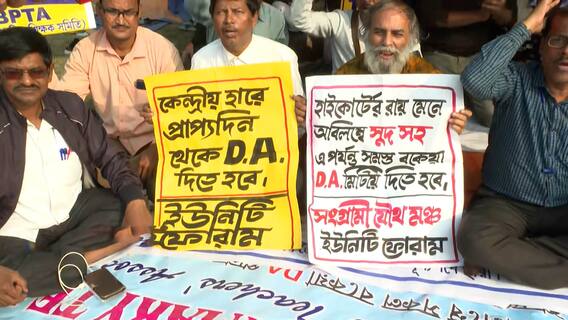 BPTA
শিক্ষক সমিতি
কেন্দ্রীয় হারে
প্রাপ্যদিন
থেকে D.A.
দিতে হবে।
ইউনিটি
ফোরাম
হাইকোর্টের রায় মেনে
অবিলম্বে সুদ সহ
এ পর্যন্ত সমস্ত বকেয়া
D.A. মিটিয়ে দিতে হবে,
সংগ্রামী যৌথ মঞ্চ
ইউনিটি ফোরাম
Teachers' Assoc